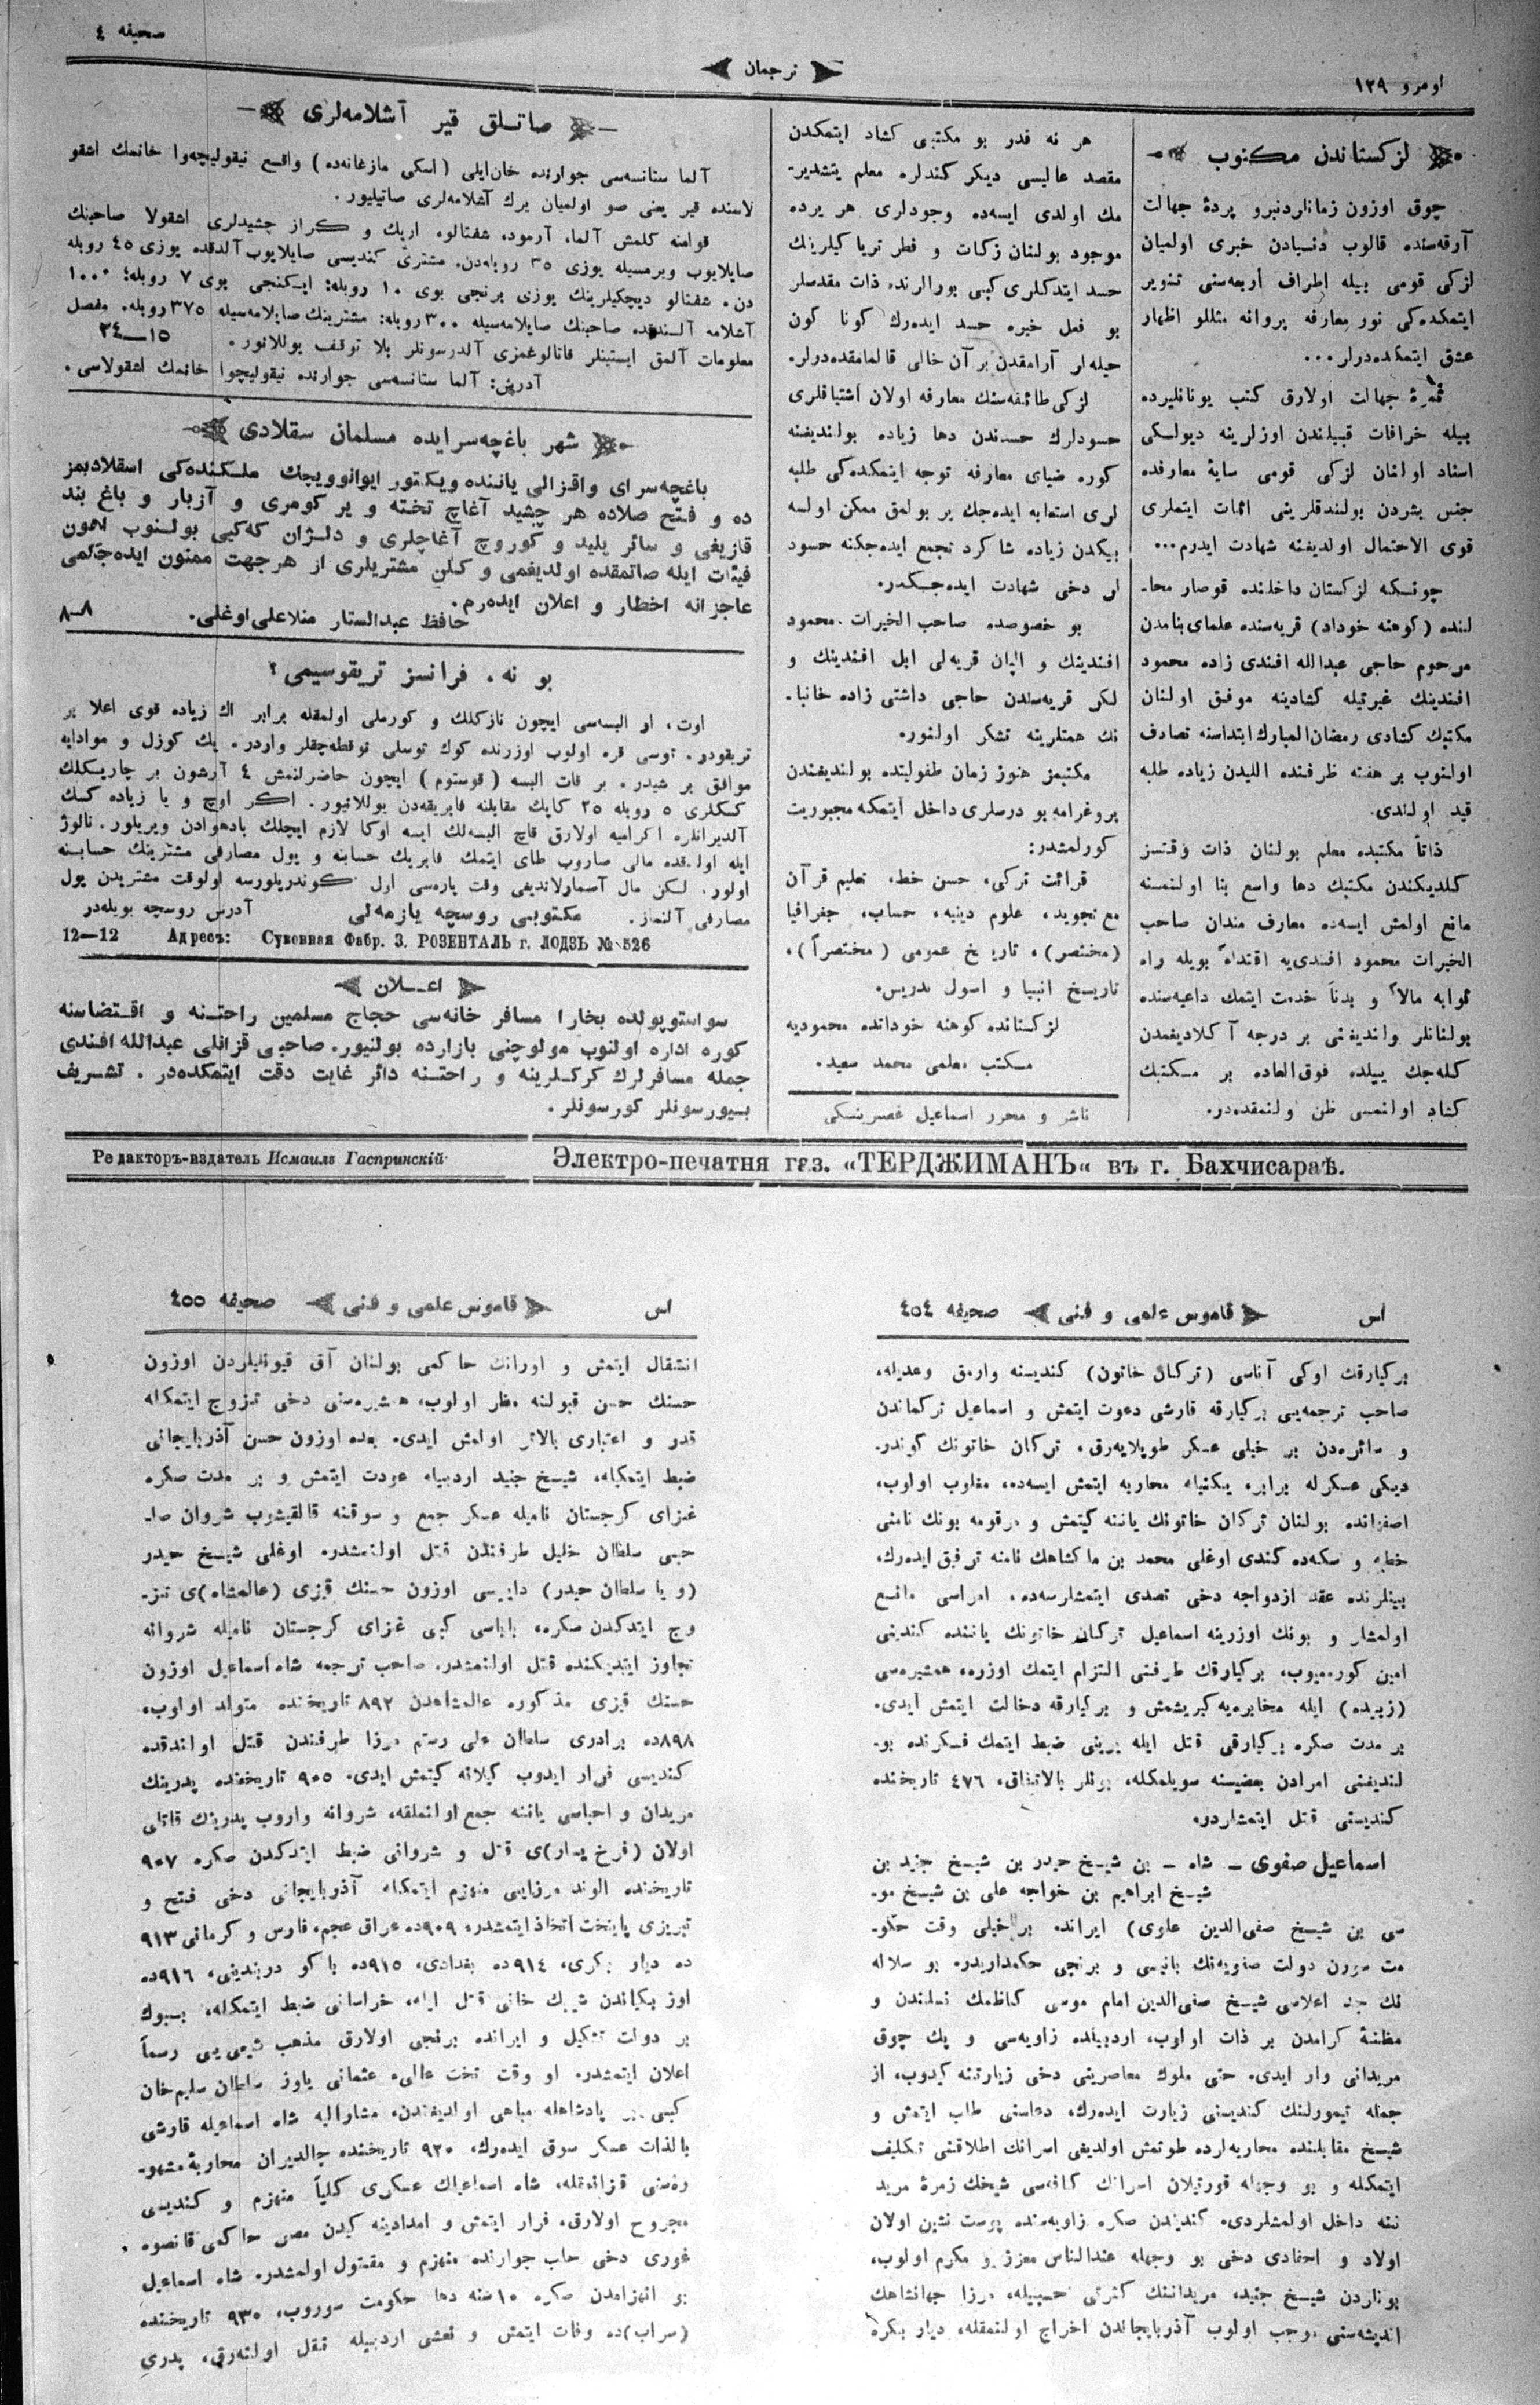 نومرو ١٢٩
ترجمان
صحيفه ٤
لزكستاندن مكتوب
چوق اوزون زمانلردنبرو پردهٔ جهالت
آرقه‌سنده قالوب دنيادن خبرى اولميان
لزكى قومى بيله اطراف أربعه‌سنى تنوير
ايتمكده‌كى نور معارفه پروانه مثللو اظهار
عشق ايتمكده‌درلر...
ثمرهٔ جهالت اولارق كتب يونانليرده
بيله خرافات قبيلندن اوزلرينه ديولسكى
اسناد اولنان لزكى قومى سايهٔ معارفده
جنس بشردن بولندقلرينى اثبات ايتملرى
قوى الاحتمال اولديغنه شهادت ايدرم...
چونكه لزكستان داخلنده قوصار محا-
لنده (كوهنه خوداد) قريه‌سنده علماى بنامدن
مرحوم حاجى عبدالله افندى زاده محمود
افندينك غيرتيله كشادينه موفق اولنان
مكتبك كشادى رمضان المبارك ابتداسنه تصادف
اولنوب بر هفته ظرفنده الليدن زياده طلبه
قيد اولندى.
ذاتاً مكتبده معلم بولنان ذات وقتسز
كلديكندن مكتبك دها واسع بنا اولنمسنه
مانع اولمش ايسه‌ده معارف مندان صاحب
الخيرات محمود افندى‌يه اقتداءً بويله راه
ثوابه مالاً و بدناً خدمت ايتمك داعيه‌سنده
بولنانلر بولنديغنى بر درجه آكلاديغمدن
كله‌جك ييلده فوق‌العاده بر مكتبك
كشاد اولنمسى ظن اولنمقده‌در.
هر نه قدر بو مكتبى كشاد ايتمكدن
مقصد عاليسى ديكر كندلره معلم يتشدير-
مك اولدى ايسه‌ده وجودلرى هر يرده
موجود بولنان زكات و فطر ترياكيلرينك
حسد ايتدكلرى كبى بورالرنده ذات مقدسلر
بو فعل خيره حسد ايده‌رك كونا كون
حيله‌لر آرامقدن بر آن خالى قالمامقده‌درلر.
لزكى طائفه‌سنك معارفه اولان اشتياقلرى
حسودلرك حسدندن دها زياده بولنديغنه
كوره ضياى معارفه توجه ايتمكده‌كى طلبه
لرى استعابه ايده‌جك ير بولمق ممكن اولسه
بيكدن زياده شاكرد تجمع ايده‌جكنه حسود
لر دخى شهادت ايده‌جكدر.
بو خصوصده صاحب الخيرات محمود
افندينك و الپان قريه‌لى ابل افندينك و
لكر قريه‌سندن حاجى داشتى زاده خانبا-
نك همتلرينه تشكر اولنور.
مكتبمز هنوز زمان طفوليتده بولنديغندن
پروغرامه بو درسلرى داخل ايتمكه مجبوريت
كورلمشدر:
قرائت تركى، حسن خط، تعليم قرآن
مع تجويد، علوم دينيه، حساب، جغرافيا
(مختصر)، تاريخ عمومى (مختصراً)،
تاريخ انبيا و اصول تدريس.
لزكستانده كوهنه خودادده محموديه
مكتب معلمى محمد سعيد.
ناشر و محرر اسماعيل غصپرينسكى
صاتلق قير آشلامه‌لرى
آلما ستانسه‌سى جوارنده خان‌ايلى (اسكى مازغانه‌ده) واقع نيقوليچه‌وا خانمك اشقو
لاسنده قير يعنى صو اولميان يرك آشلامه‌لرى صاتيليور.
قوامنه كلمش آلما، آرمود، شفتالو، اريك و كراز چشيدلرى اشقولا صاحبنك
صايلايوب ويرمسيله يوزى ٣٥ روبله‌دن، مشترى كنديسى صايلايوب آلدقده يوزى ٤٥ روبله
دن. شفتالو ديچكيلرينك يوزى برنجى بوى ١٠ روبله؛ ايكنجى بوى ٧ روبله؛ ١٠٠٠
آشلامه آلنديقده صاحبنك صايلامه‌سيله ٣٠٠ روبله؛ مشترينك صايلامه‌سيله ٣٧٥ روبله. مفصل
معلومات آلمق ايستينلر قاتالوغمزى آلدرسونلر بلا توقف يوللانور. ١٥—٢٤
آدريس: آلما ستانسه‌سى جوارنده نيقوليچوا خانمك اشقولاسى.
شهر باغچه‌سرايده مسلمان سقلادى
باغچه‌سراى واقزالى ياننده ويكتور ايوانوويچك ملكنده‌كى اسقلادبمز
ده و فتح صلاده هر چشيد آغاچ تخته و ير كومرى و آزبار و باغ بند
قازيغى و سائر پليد و كوروچ آغاچلرى و دلژان كه‌كيى بولنوب اهون
فيئات ايله صاتمقده اولديغمى و كلن مشتريلرى از هر جهت ممنون ايده‌جكمى
عاجزانه اخطار و اعلان ايده‌رم.
حافظ عبدالستار منلا على اوغلى. ٨—٨
بو نه، فرانسز تريقوسيمى؟
اوت، ار البسه‌سى ايچون نازكلك و كورملى اولمقله برابر اك زياده قوى اعلا بر
تريقودر. توسى قره اولوب اوزرنده كوك توسلى نوقطه‌چقلر واردر. پك كوزل و مودايه
موافق بر شيدر. بر قات البسه (قوستوم) ايچون حاضرلنمش ٤ آرشون بر چاريكلك
كسكلرى ٥ روبله ٢٥ كاپك مقابلنه فابريقه‌دن يوللانيور. اكر اوچ و يا زياده كسك
آلديرانلره اكراميه اولارق قاچ البسه‌لك ايسه اوكا لازم ايچلك بادهوادن ويريلور. نالوژ
ايله اولنده مالى صاروب طاى ايتمك فابريك حسابنه و يول مصارفى مشترينك حسابنه
اولور. لكن مال آصمارلانديغى وقت پاره‌سى اول كوندريلورسه اولوقت مشتريدن يول
مصارفى آلنماز. مكتوبى روسچه يازمه‌لى آدرس روسچه بويله‌در
12—12 Адресъ: Суконная Фабр. З. РОЗЕНТАЛЬ г. ЛОДЗЬ № 526
اعلان
سواستوپولده بخارا مسافر خانه‌سى حجاج مسلمين راحتنه و اقتضاسنه
كوره اداره اولنوب مولوچنى بازارده بولنيور. صاحبى قزانلى عبدالله افندى
جمله مسافرلرك كركلرينه و راحتنه دائر غايت دقت ايتمكده‌در. تشريف
بيورسونلر كورسونلر.
Редакторъ-издатель Исмаилъ Гаспринскій
Электро-печатня газ. «ТЕРДЖИМАНЪ« въ г. Бахчисараѣ.
اس
قاموس علمى و فنى
صحيفه ٤٥٤
بركيارقك اوكى آناسى (تركان خاتون) كنديسنه وارمق وعديله،
صاحب ترجمه‌يى بركيارقه قارشى دعوت ايتمش و اسماعيل تركماندن
و سائره‌دن بر خيلى عسكر طوپلايه‌رق، تركان خاتونك كوندر-
ديكى عسكرله برابر، بركيارقله محاربه ايتمش ايسه‌ده، مغلوب اولوب،
اصفهانده بولنان تركان خاتونك ياننه كيتمش و مرقومه بونك نامنى
خطبه و سكه‌ده كندى اوغلى محمد بن ملكشاهك نامنه ترفيق ايده‌رك،
بينلرنده عقد ازدواجه دخى تصدى ايتمشلرسه‌ده، امراسى مانع
اولمشلر و بونك اوزرينه اسماعيل تركان خاتونك ياننده كندينى
امين كورميوب، بركيارقك طرفنى التزام ايتمك اوزره، همشيره‌سى
(زبيده) ايله مخابره‌يه كيريشمش و بركيارقه دخالت ايتمش ايدى.
بر مدت صكره بركيارقى قتل ايله يرينى ضبط ايتمك فكرنده بو-
لنديغنى امرادن بعضيسنه سويلمكله، بونلر بالاتفاق، ٤٧٦ تاريخنده
كنديسنى قتل ايتمشلردر.
اسماعيل صفوى — شاه — بن شيخ حيدر بن شيخ جنيد بن
شيخ ابراهيم بن خواجه على بن شيخ مو-
سى بن شيخ صفى‌الدين علوى) ايرانده بر خيلى وقت حكو-
مت سورن دولت صفويه‌نك بانيسى و برنجى حكمداريدر. بو سلاله
نك جد اعلاسى شيخ صفى‌الدين امام موسى كاظمك نسلندن و
مظنهٔ كرامدن بر ذات اولوب، اردبيلده زاويه‌سى و پك چوق
مريدانى وار ايدى. حتى ملوك معاصرينى دخى زيارتنه كيدوب، از
جمله تيمورلنك كنديسنى زيارت ايده‌رك، دعاسنى طلب ايتمش و
شيخ مقابلنده محاربه‌لرده طوتمش اولديغى اسرانك اطلاقنى تكليف
ايتمكله و بو وجهله قورتيلان اسرانك كافه‌سى شيخك زمرهٔ مريد
ننه داخل اولمشلردى. كنديدن صكره زاويه‌سنده پوست نشين اولان
اولاد و احفادى دخى بو وجهله عندالناس معزز و مكرم اولوب،
بونلردن شيخ جنيد، مريداننك كثرتى حسبيله، مرزا جهانشاهك
انديشه‌سنى موجب اولوب آذربايجاندن اخراج اولنمقله، ديار بكره
اس
قاموس علمى و فنى
صحيفه ٤٥٥
انتقال ايتمش و اورانك حاكمى بولنان آق قيونليلردن اوزون
حسنك حسن قبولنه مظهر اولوب، همشيره‌سنى دخى تزوج ايتمكله
قدر و اعتبارى بالاتر اولمش ايدى. بعده اوزون حسن آذربايجانى
ضبط ايتمكله، شيخ جنيد اردبيله عودت ايتمش و بر مدت صكره
غزاى كرجستان ناميله عسكر جمع و سوقنه قالقيشوب شروان صا-
حبى سلطان خليل طرفندن قتل اولنمشدر. اوغلى شيخ حيدر
(و يا سلطان حيدر) داييسى اوزون حسنك قيزى (عالمشاه)ى تز-
وج ايتدكدن صكره، باباسى كبى غزاى كرجستان ناميله شروانه
تجاوز ايتديكنده قتل اولنمشدر. صاحب ترجمه شاه اسماعيل اوزون
حسنك قيزى مذكوره عالمشاهدن ٨٩٢ تاريخنده متولد اولوب،
٨٩٨ده برادرى سلطان على رستم مرزا طرفندن قتل اولندقده
كنديسى فرار ايدوب كيلانه كيتمش ايدى. ٩٠٥ تاريخنده پدرينك
مريدان و احباسى ياننه جمع اولنمقله، شروانه واروب پدرينك قاتلى
اولان (فرخ يسار)ى قتل و شروانى ضبط ايتدكدن صكره ٩٠٧
تاريخنده الوند مرزايى منهزم ايتمكله آذربايجانى دخى فتح و
تبريزى پايتخت اتخاذ ايتمشدر. ٩٠٩ده عراق عجم، فارس و كرمانى ٩١٣
ده ديار بكرى، ٩١٤ده بغدادى، ٩١٥ده باكو دربندينى، ٩١٦ده
اوزبكلردن شيبك خانى قتل ايله، خراسانى ضبط ايتمكله، بيوك
بر دولت تشكيل و ايرانده برنجى اولارق مذهب شيعى‌يى رسماً
اعلان ايتمشدر. او وقت تخت عالىء عثمانى ياوز سلطان سليم خان
كبى بر پادشاهله مباهى اولديغندن، مشاراليه شاه اسماعيله قارشى
بالذات عسكر سوق ايده‌رك، ٩٢٠ تاريخنده چالديران محاربهٔ مشهو-
ره‌سنى قزانمقله، شاه اسماعيلك عسكرى كلياً منهزم و كنديسى
مجروح اولارق، فرار ايتمش و امدادينه كيدن مصر حاكمى قانصوه
غورى دخى حلب جوارنده منهزم و مقتول اولمشدر. شاه اسماعيل
بو انهزامدن صكره ١٠ سنه دها حكومت سوروب، ٩٣٠ تاريخنده
(سراب)ده وفات ايتمش و نعشى اردبيله نقل اولنه‌رق، پدرى